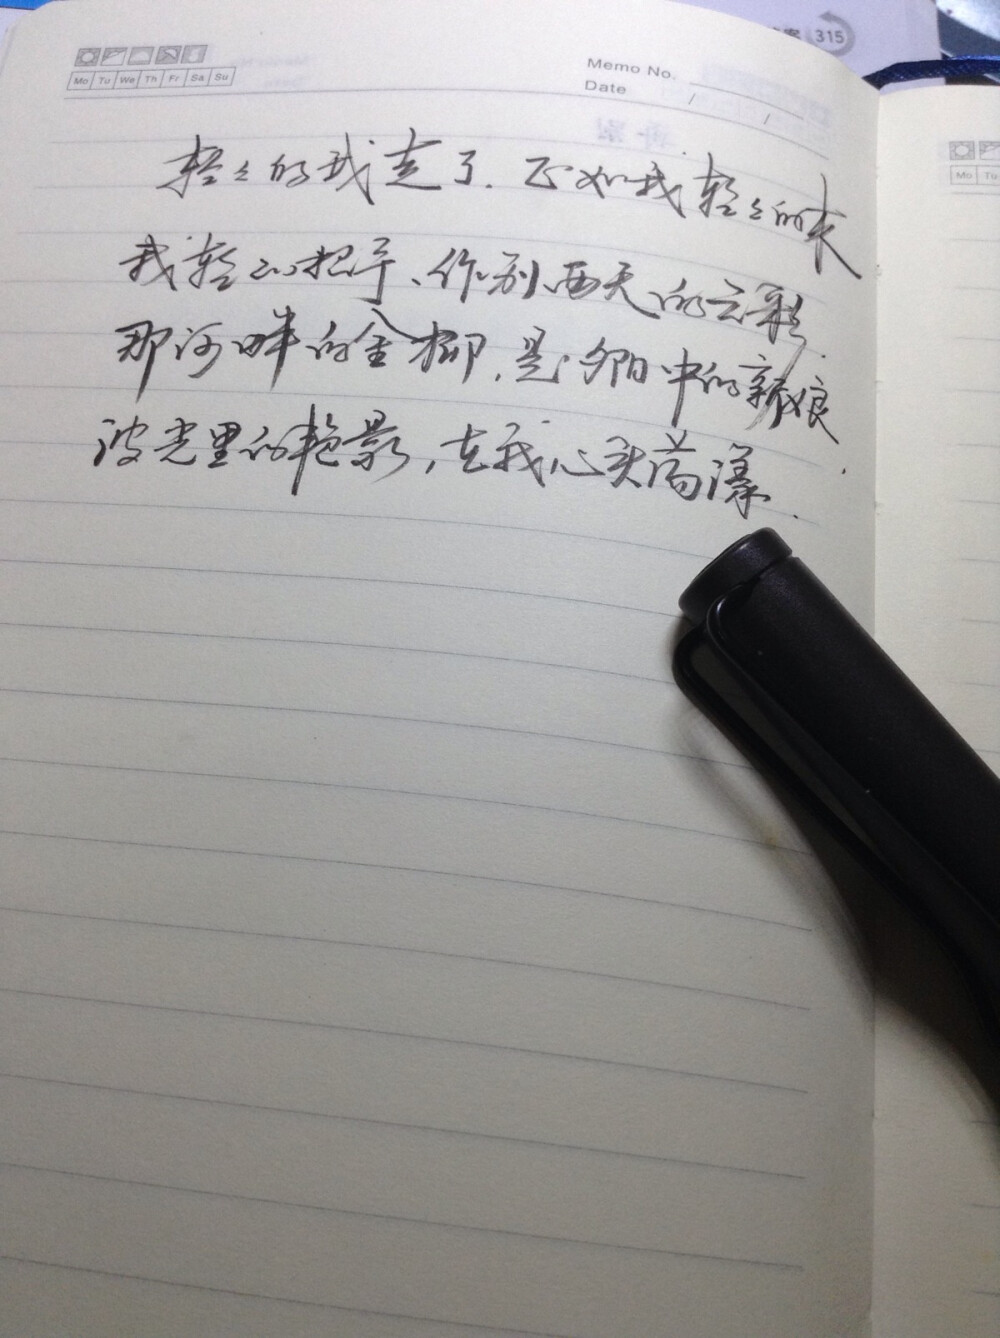 315
Mo Tu We Th Fr Sa Su
Memo No.
Date / /
轻々的我走了.正如我轻々的来
我轻々的招手、作别西天的云彩.
那河畔的金柳,是夕阳中的新娘
波光里的艳影,在我心头荡漾.
Mo Tu